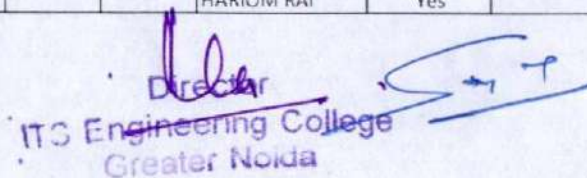 HARIOM RAI Yes
Director
ITS Engineering College
Greater Noida